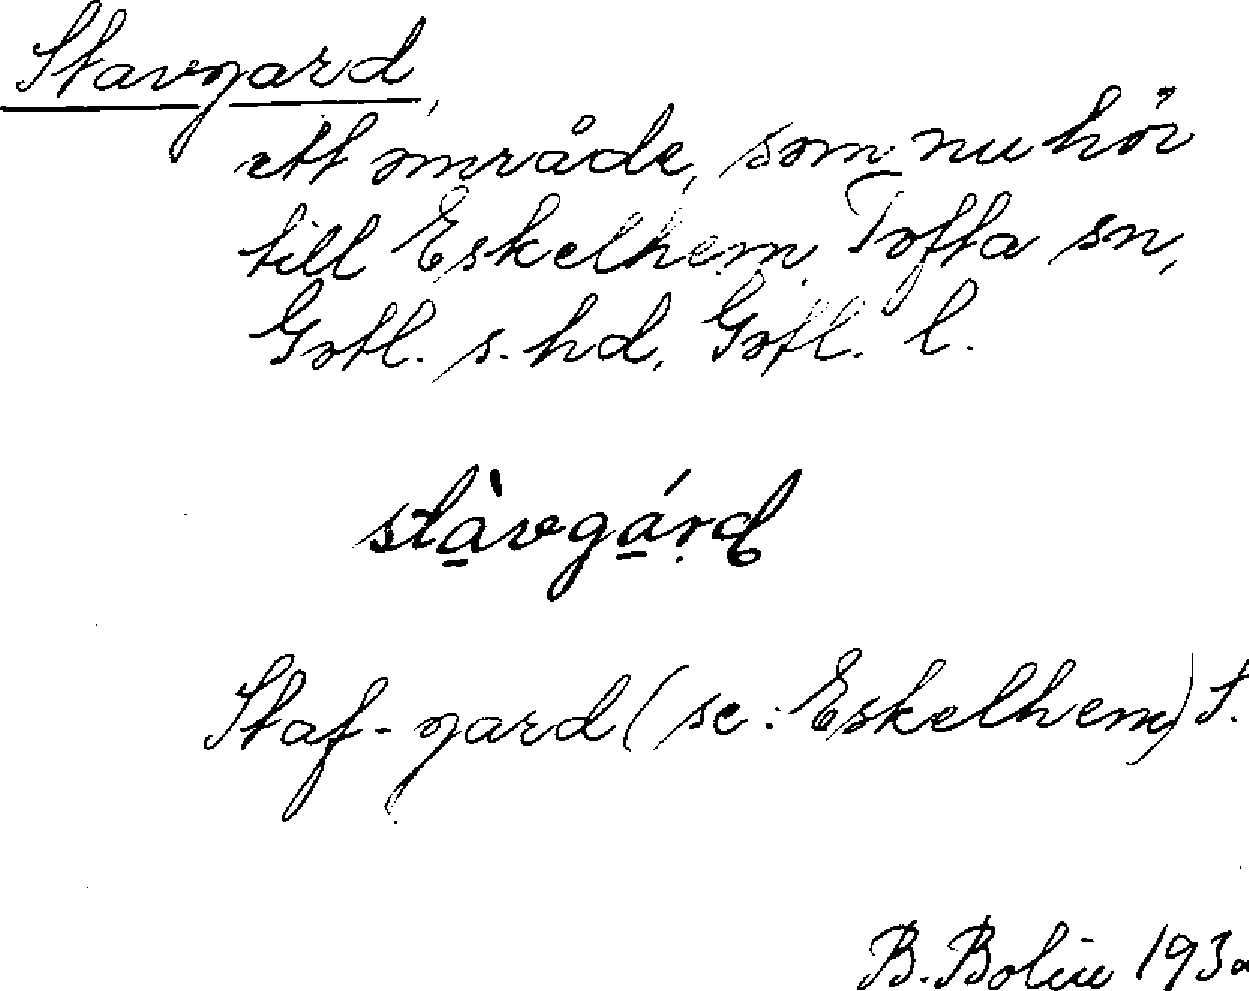 Stavgard,
ett område, som nu hör
till Eskelhem, Tofta sn,
Gotl. s. hd, Gotl. l.
stàvgárd
Staf-gard (se: Eskelhem) S.
B. Bolin 1930